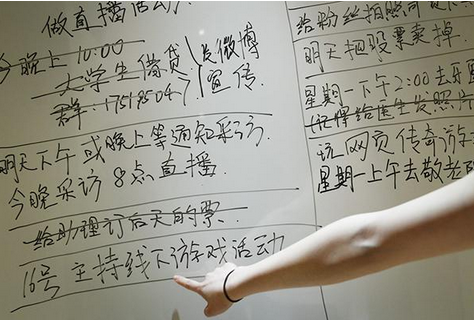 做直播活动
晚上10:00
大学生借贷
发微博
宣传
群:
明天下午或晚上等通知采访
今晚采访8点直播
给助理订后天的票
16号主持线下游戏活动
给粉丝拍照
明天把股票卖掉
星期一下午2:00去
记得给医生发照片
玩网页传奇游
星期一上午去敬老